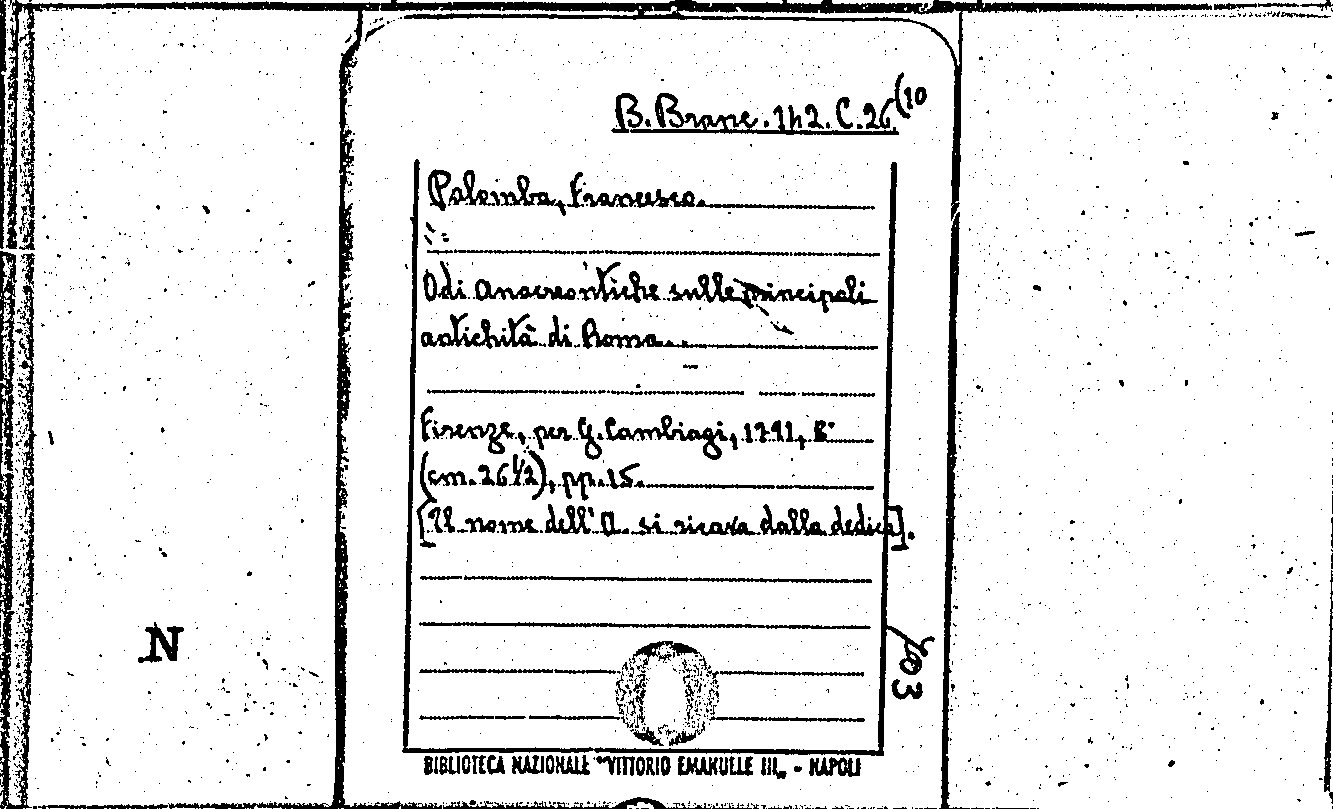 B. Branc. 142. C. 26 (10
Palomba, Francesco.
Odi Anacreontiche sulle principali
antichità di Roma...
Firenze, per G. Cambiagi, 1791, 8°
(cm. 26 1/2), pp. 15.
[Il nome dell'A. si ricava dalla dedica].
N
703
BIBLIOTECA NAZIONALE "VITTORIO EMANUELE III„ - NAPOLI